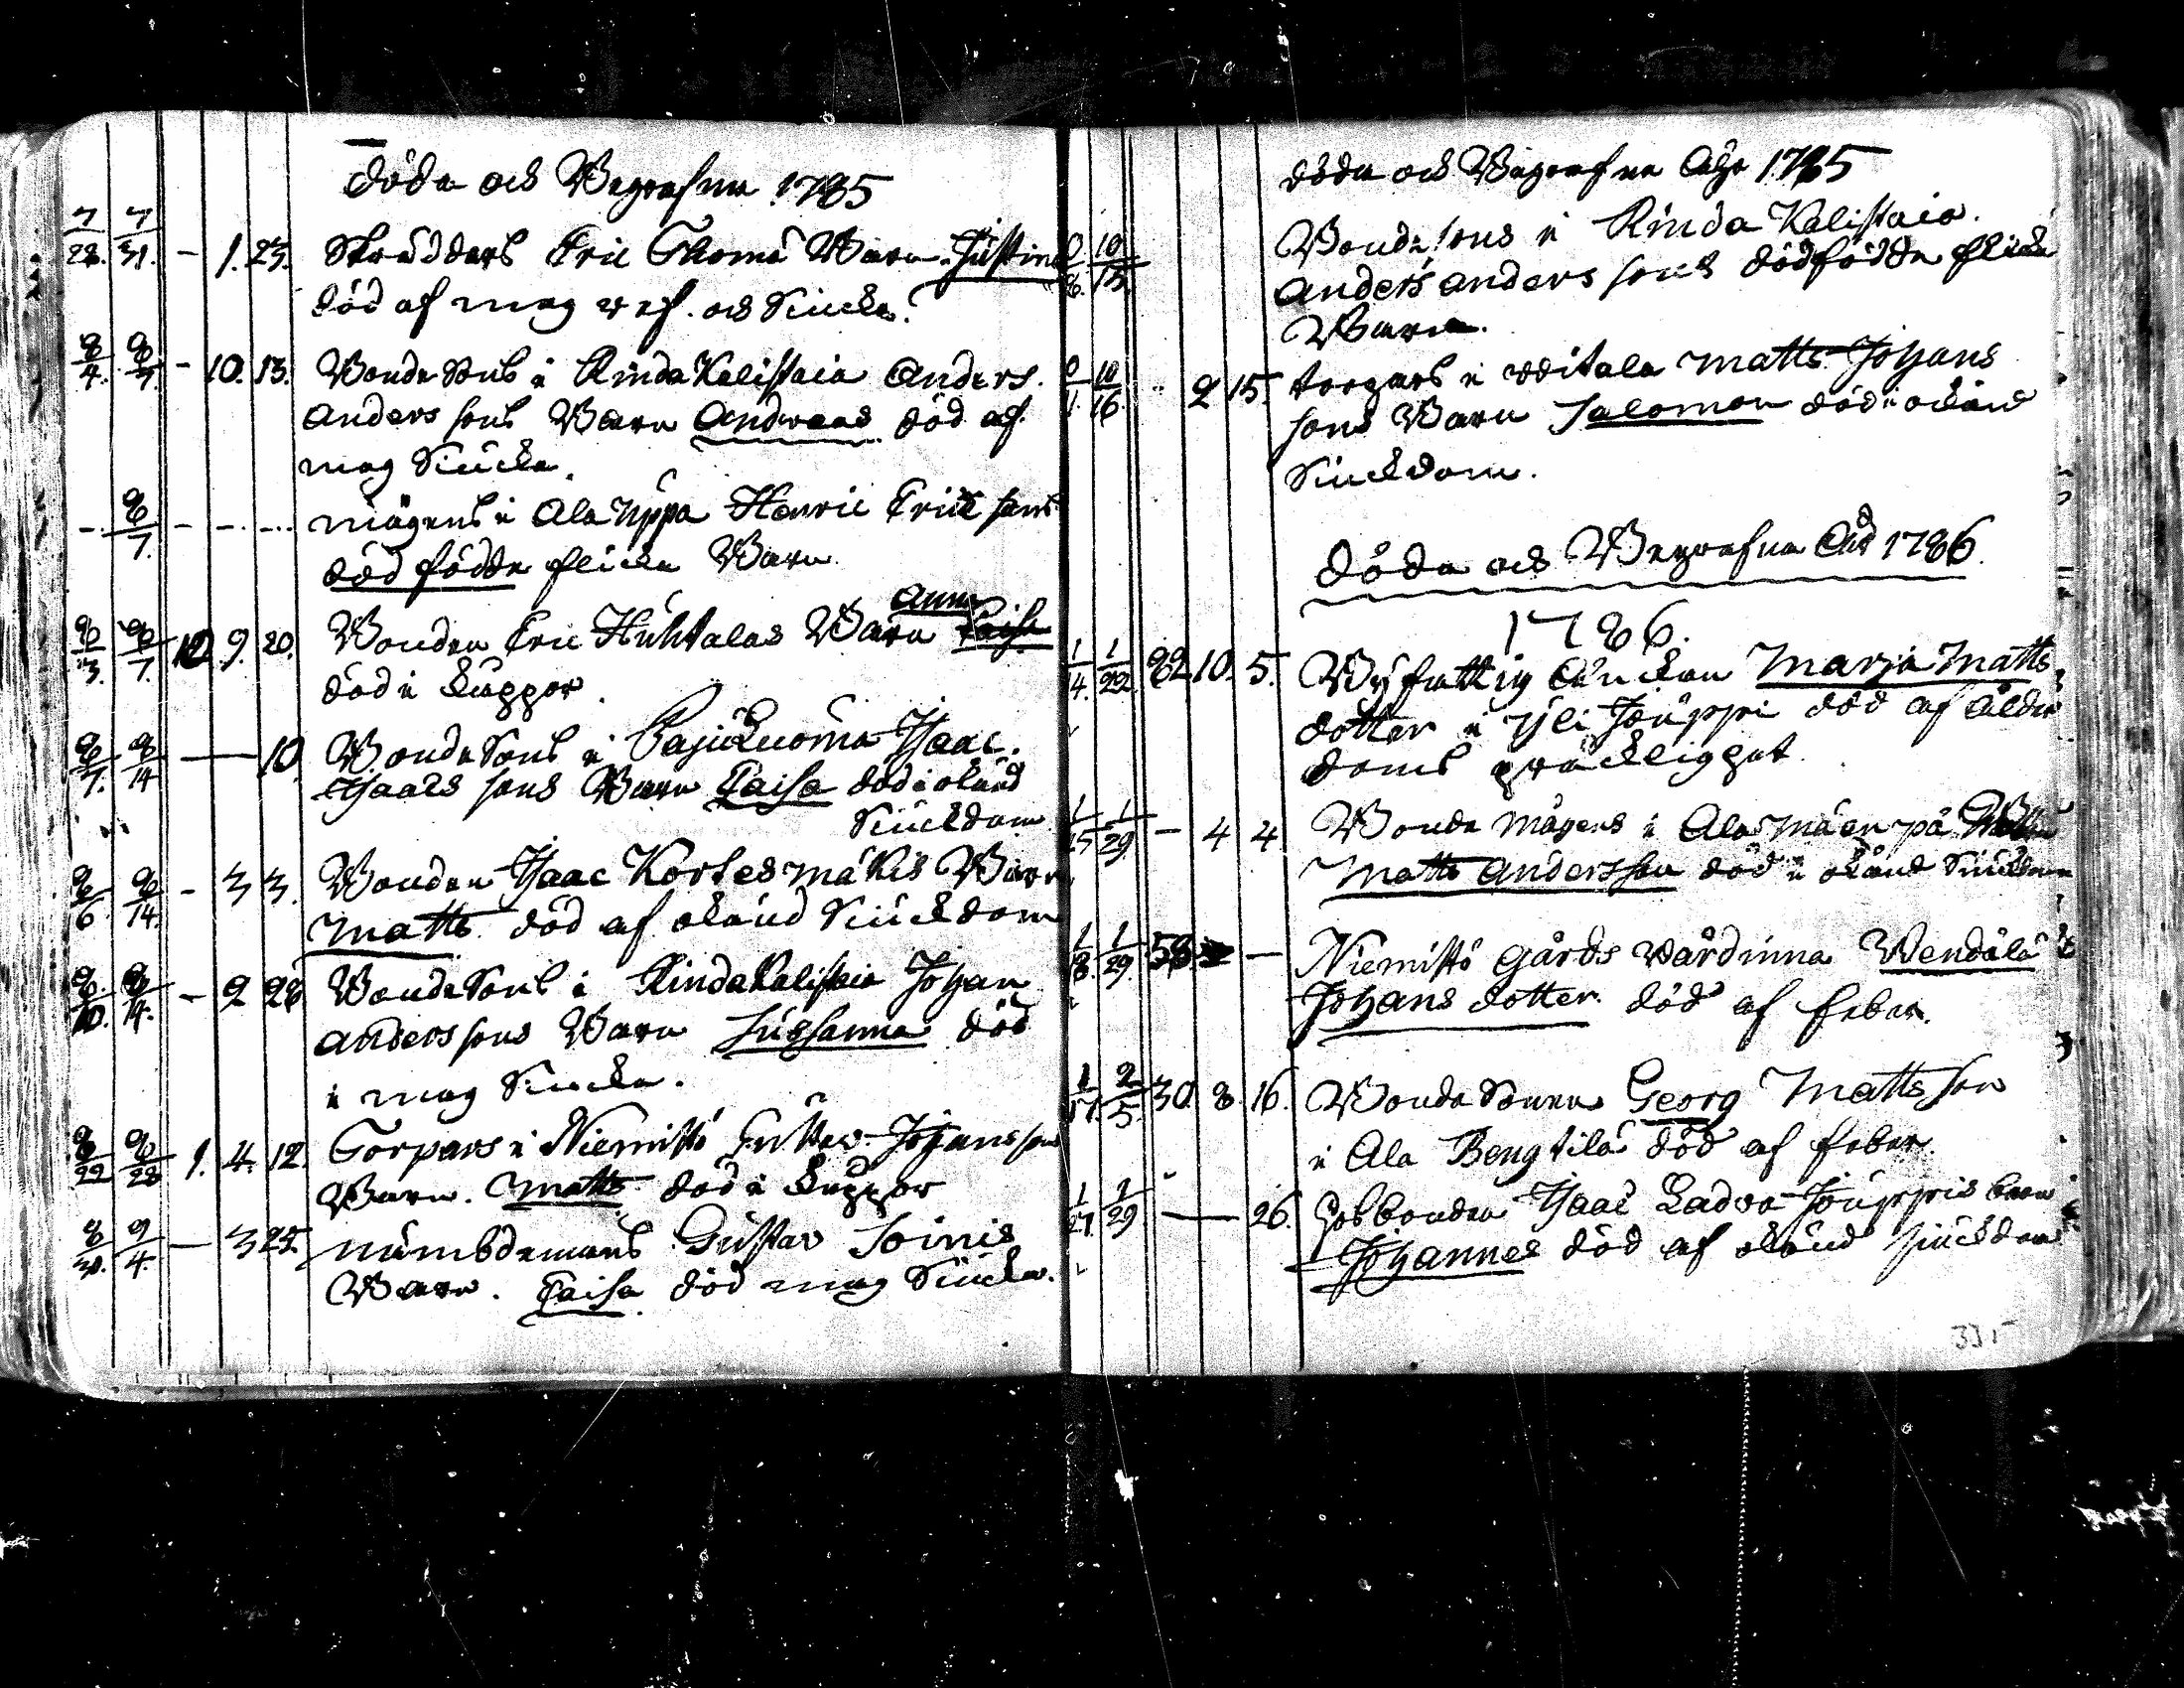 döda och Begrafne 1785
7/28. 7/31. - 1. 23. Skräddars Eric Thomæ Barn Justina
död af mag ref. och Siucka.
8/4. 8/7. - 10. 13. Bonde Sons i Rinda Kalistaia Anders
Anders sons Barn Andreas död af
mag Siucka.
- 8/7. - - - mågens i Ala Uppa Henric Erics sons
död födde flicke Barn
Anna
8/3. 8/7. 10 9. 20. Bonden Eric Huhtalas Barn Caisa
död i Kåppor.
8/7. 8/14 — 10 Bonde Sons i Pajuluoma Isaac
Isaacs sons Barn Caisa död i okänd
Siuckdom
8/6. 8/14. - 3 3. Bonden Isaac Kortesmäkis Barn
Matts död af okänd Siuckdom
8/10. 8/14. - 2 28 Bonde Sons i Rinda Kalistaia Johan
Anders sons Barn Susanna död
i mag Siucka.
8/22 8/28 1. 4. 12. Torpars i Niemistö Gustav Johans sons
Barn. Matts död i Koppor
8/30. 9/4. — 3 25. nämbdemans Gustav Soinis
Barn. Caisa död mag Siucka.
döda och Begrafne Åhr 1785
10/15. Bonde sons i Rinda Kalistaia
Anders Anders sons dödfödde flicke
Barn.
10/16. 2 15. torpars i Witala Matts Johans
sons Barn Salomon död i okänd
Siuckdom.
döda och Begrafne Åhr 1786
1786.
1/4. 1/22. 82 10. 5. Byfattig Änckan Maria Matts
dotter i Yli Jouppi död af ålder
doms bräcklighet.
1/15 1/29. - 4 4 Bonde mågens i Ala Mäenpä
Matts Andersson död i okänd Siuckdom
1/18. 1/29. 58. — Niemistö gårds Värdinna Wendela
Johans dotter död af feber.
1/27. 2/5. 30. 8. 16. Bonde Sonen Georg Mattsson
i Ala Bengtilä död af feber.
1/27. 1/29 — 26. Bonden Isaac Ladva Jouppis barn
Johannes död af okänd siuckdom
335